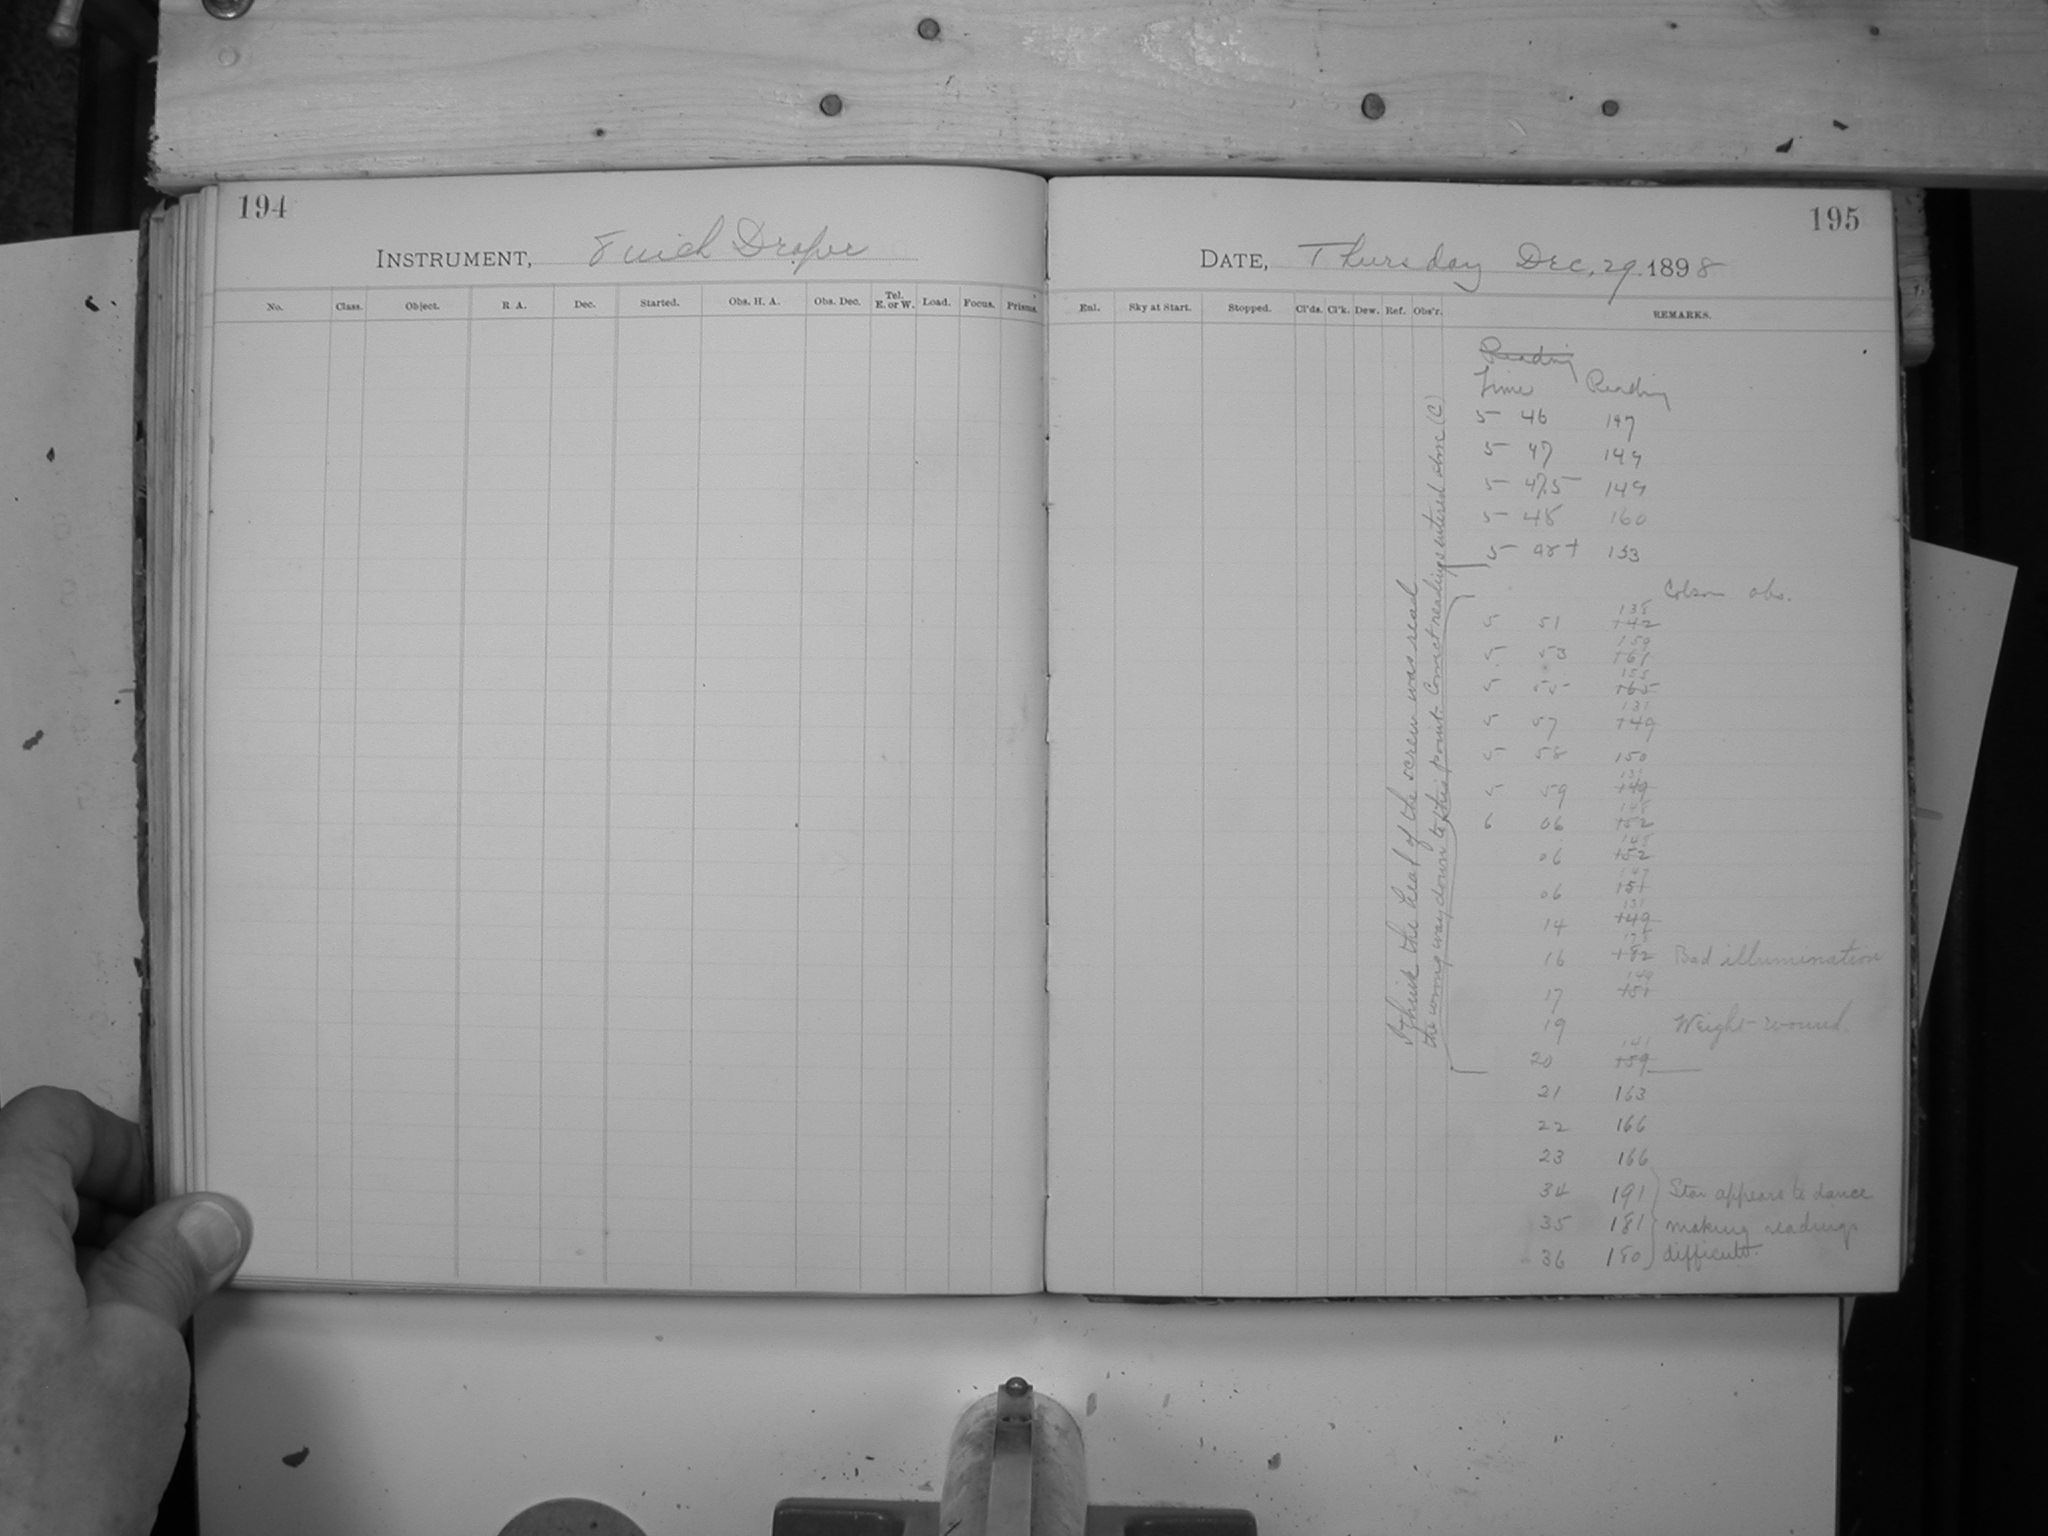 194
INSTRUMENT, 8 inch Draper
No. Class. Object. R A. Dec. Started. Obs. H. A. Obs. Dec. Tel. E. or W. Load. Focus. Prisms.
195
DATE, Thursday Dec. 29. 1898
Enl. Sky at Start. Stopped. Cl'ds. Cl'k. Dew. Ref. Obs'r. REMARKS.
Reading
Time Reading
5 46 147
5 47 149
5 47.5 149
5 48 160
5 48+ 153
Obs.
138
5 51 142
159
5 53 161
155
5 55 165
131
5 57 149
5 58 150
131
5 59 149
6 06 152
145
06 152
06 151
131
14 149
16 182 Bad illumination
149
17 151
19 Weight wound.
141
20 159
21 163
22 166
23 166
34 191 Star appears to dance
35 181 making readings
36 180 difficult.
I think the head of the screw was read
the wrong way down to this point. Correct readings entered above (C)